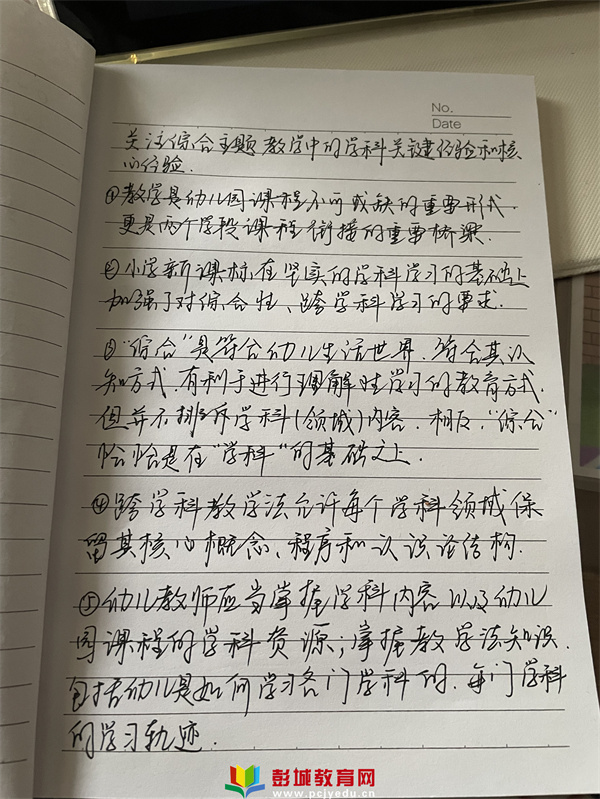 No.
Date
关注综合主题教学中的学科关键经验和核
心经验.
①教学是幼儿园课程不可或缺的重要形式.
更是两个学段课程衔接的重要桥梁.
②小学新课标,在坚实的学科学习的基础上
加强了对综合性、跨学科学习的要求.
③“综合”是符合幼儿生活世界.符合其认
知方式.有利于进行理解性学习的教育方式.
但并不排斥学科(领域)内容.相反,“综合”
恰恰是在“学科”的基础之上.
④跨学科教学法允许每个学科领域保
留其核心概念、程序和认识论结构.
⑤幼儿教师应当掌握学科内容以及幼儿
园课程的学科资源;掌握教学法知识.
包括幼儿是如何学习各门学科的.每门学科
的学习轨迹.
彭城教育网
www.pcjyedu.cn